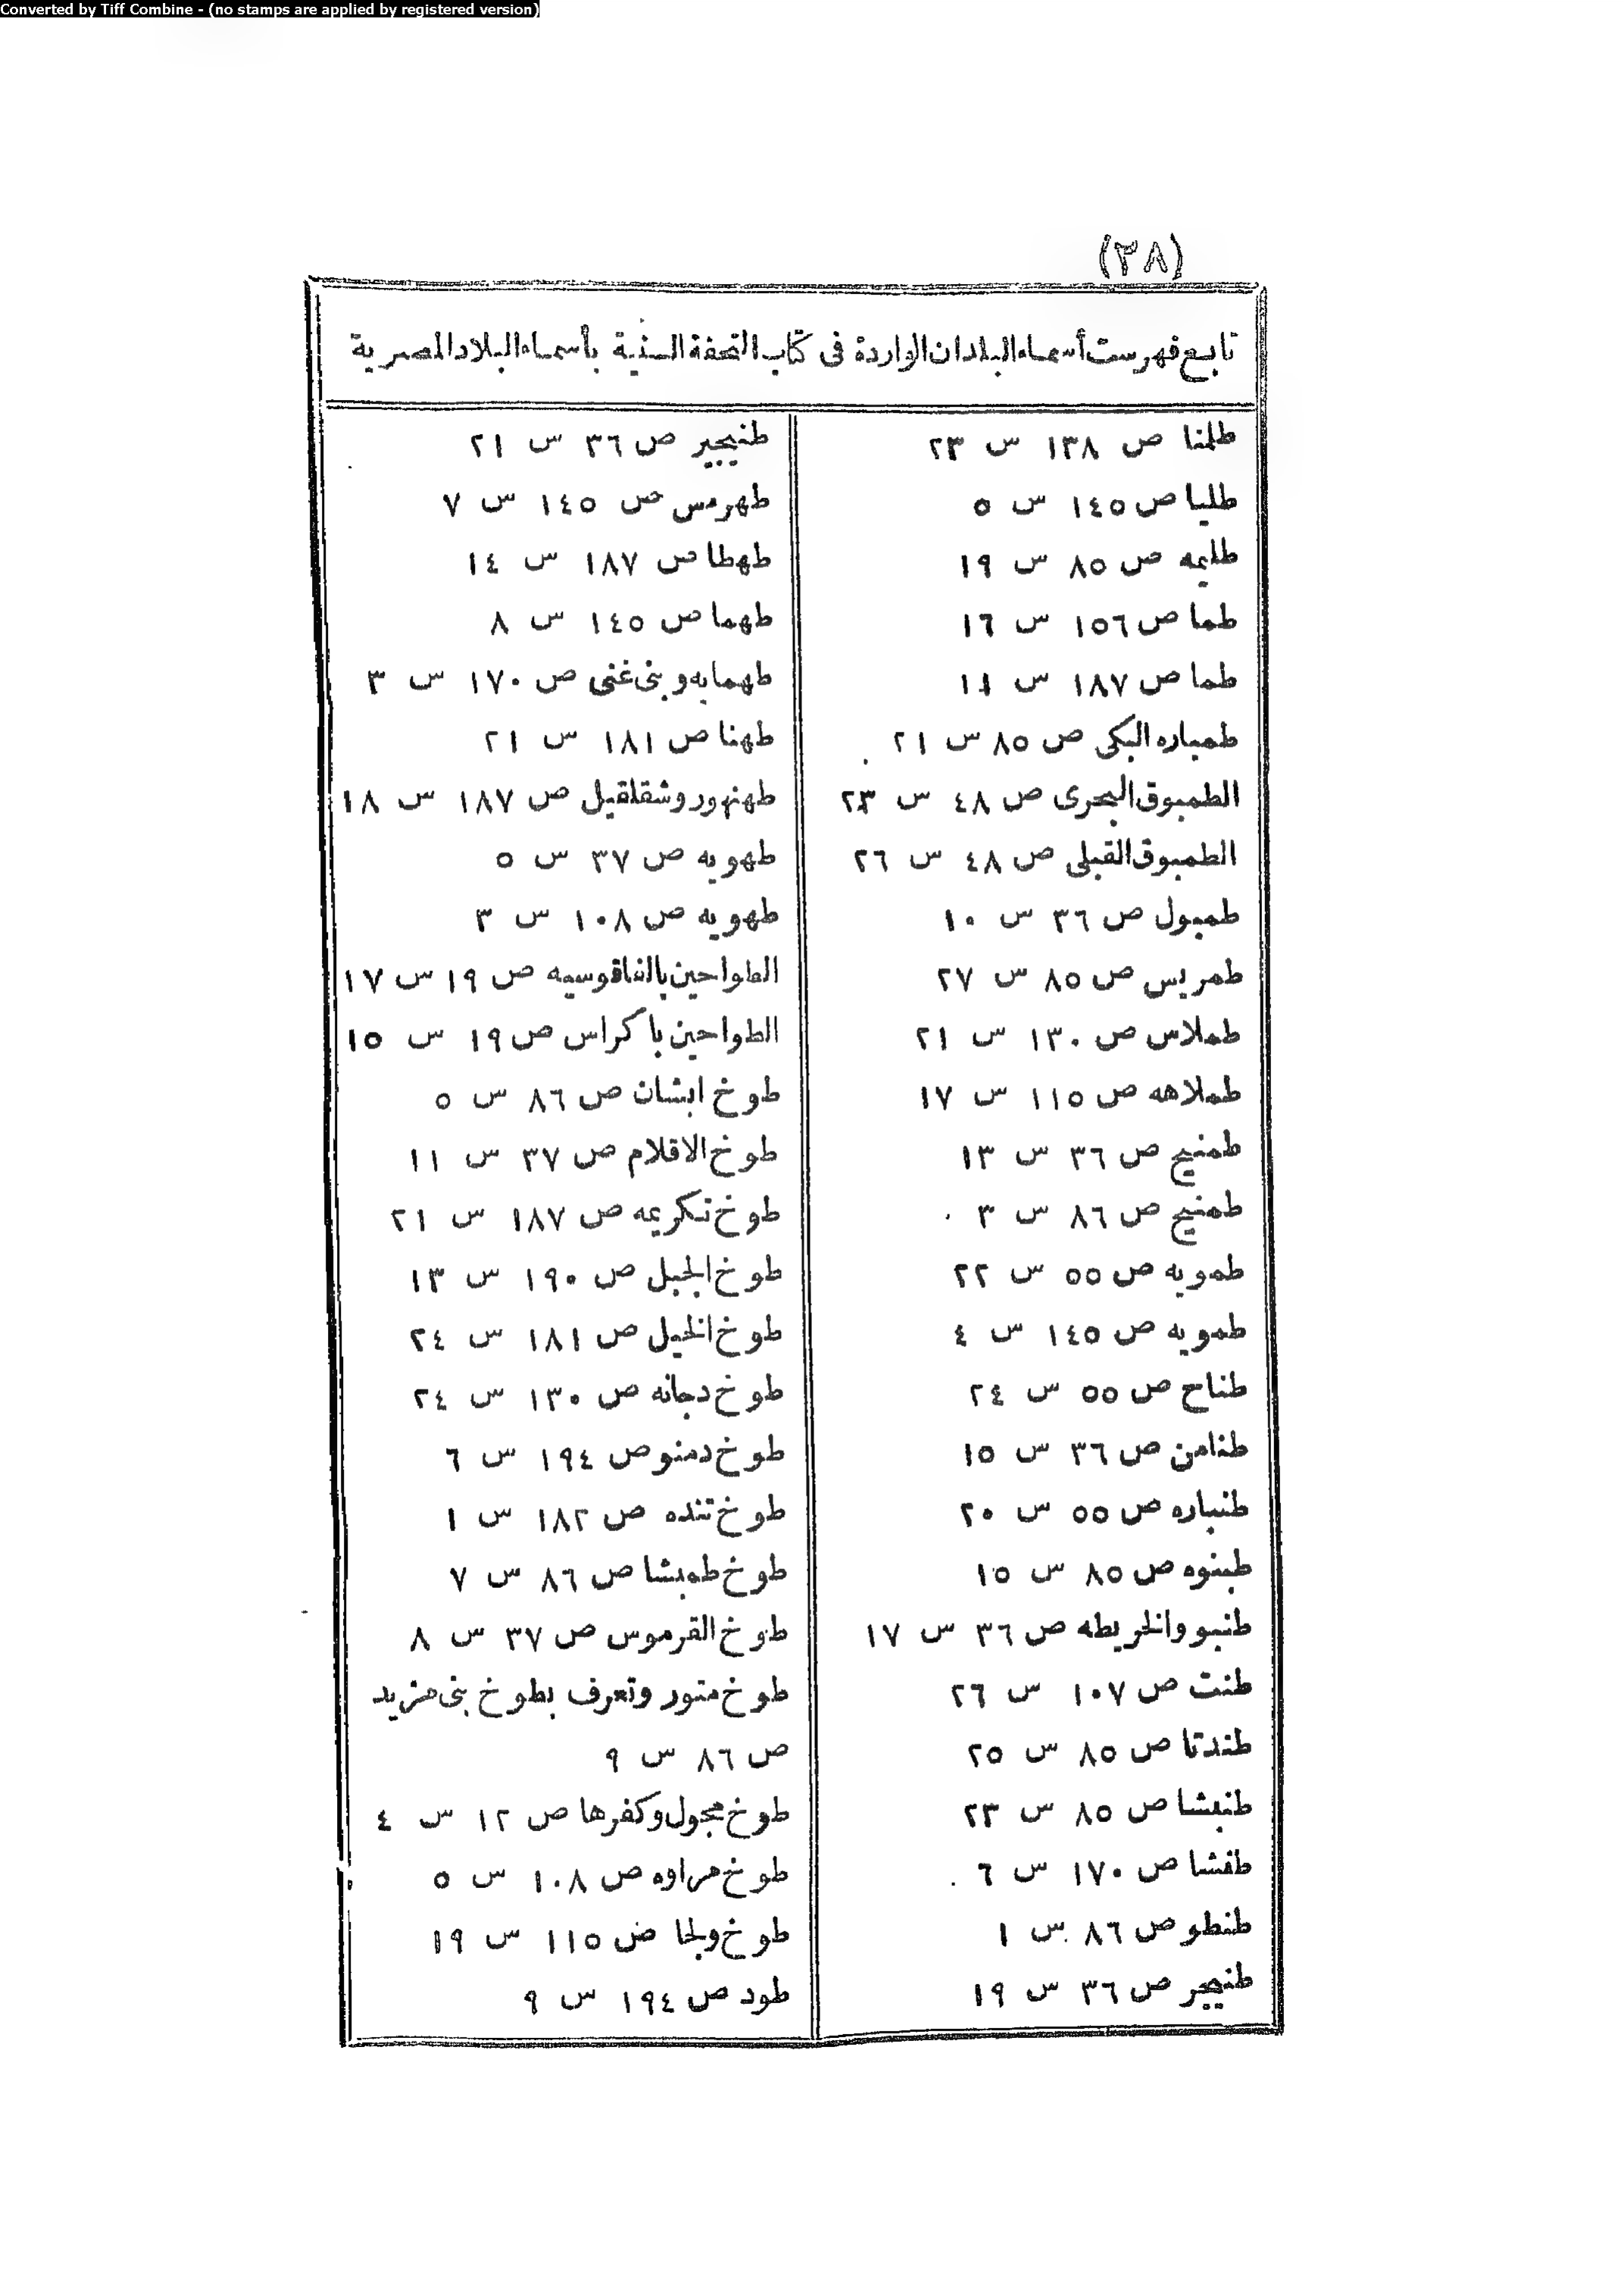 Converted by Tiff Combine - (no stamps are applied by registered version)
(٣٨)
تابع فهرست أسماء البلدان الواردة فى كتاب التحفة السنية بأسماء البلاد المصرية
طلمنا ص ١٣٨ س ٢٣
طليا ص ١٤٥ س ٥
طليمه ص ٨٥ س ١٩
طما ص ١٥٦ س ١٦
طما ص ١٨٧ س ١١
طمباره البكى ص ٨٥ س ٢١
الطمبوق البحرى ص ٤٨ س ٢٣
الطمبوق القبلى ص ٤٨ س ٢٦
طمبول ص ٣٦ س ١٠
طمريس ص ٨٥ س ٢٧
طملاس ص ١٣٠ س ٢١
طملاهه ص ١١٥ س ١٧
طمنيج ص ٣٦ س ١٣
طمنيج ص ٨٦ س ٣
طمويه ص ٥٥ س ٢٢
طمويه ص ١٤٥ س ٤
طناح ص ٥٥ س ٢٤
طنامن ص ٣٦ س ١٥
طنباره ص ٥٥ س ٢٠
طبنوه ص ٨٥ س ١٥
طنبو والخريطه ص ٣٦ س ١٧
طنت ص ١٠٧ س ٢٦
طندتا ص ٨٥ س ٢٥
طنبشا ص ٨٥ س ٢٣
طنفشا ص ١٧٠ س ٦
طنطو ص ٨٦ س ١
طنيجر ص ٣٦ س ١٩
طنيجير ص ٣٦ س ٢١
طهرمس ص ١٤٥ س ٧
طهطا ص ١٨٧ س ١٤
طهما ص ١٤٥ س ٨
طهمايه وبنى غنى ص ١٧٠ س ٣
طهنا ص ١٨١ س ٢١
طهنهور وشقلقيل ص ١٨٧ س ١٨
طهويه ص ٣٧ س ٥
طهويه ص ١٠٨ س ٣
الطواحين بالفاقوسيه ص ١٩ س ١٧
الطواحين باكراس ص ١٩ س ١٥
طوخ ابشان ص ٨٦ س ٥
طوخ الاقلام ص ٣٧ س ١١
طوخ تكريمه ص ١٨٧ س ٢١
طوخ الجبل ص ١٩٠ س ١٣
طوخ الخيل ص ١٨١ س ٢٤
طوخ دجانه ص ١٣٠ س ٢٤
طوخ دمنو ص ١٩٤ س ٦
طوخ تنده ص ١٨٢ س ١
طوخ طمبشا ص ٨٦ س ٧
طوخ القرموس ص ٣٧ س ٨
طوخ متور وتعرف بطوخ بنى مزيد
ص ٨٦ س ٩
طوخ مجول وكفرها ص ١٢ س ٤
طوخ مراوه ص ١٠٨ س ٥
طوخ ولجا ص ١١٥ س ١٩
طود ص ١٩٤ س ٩